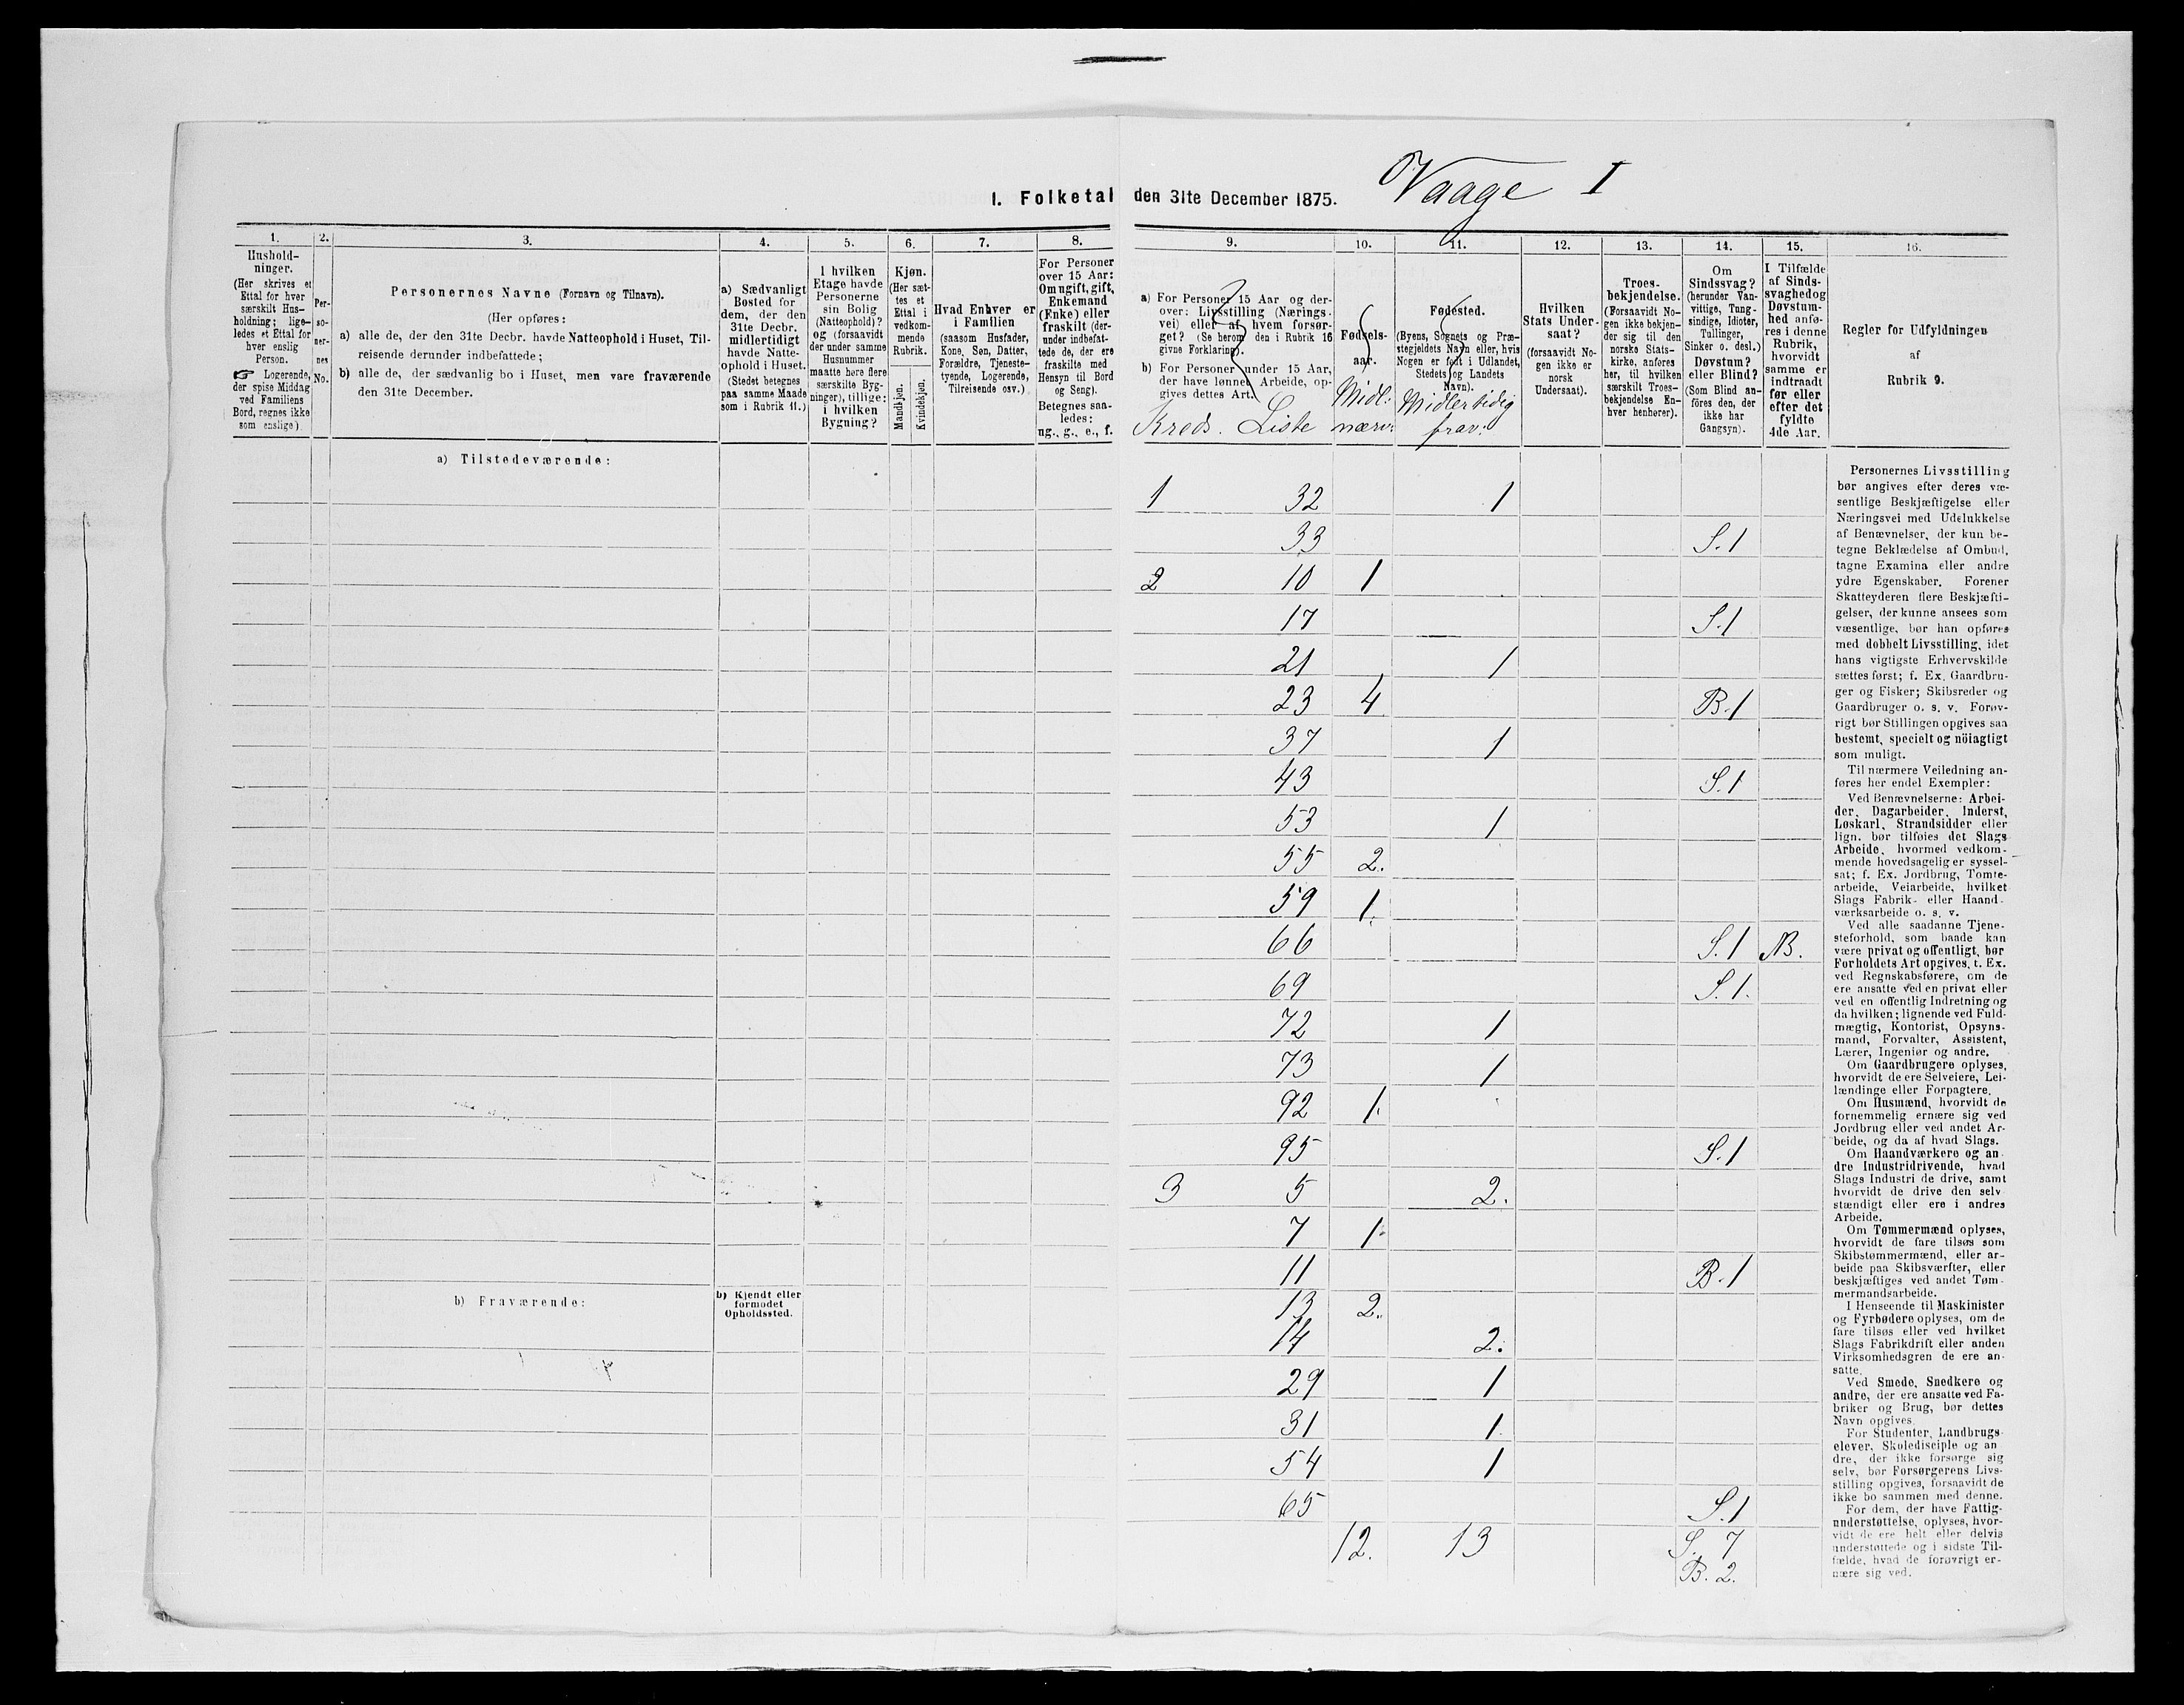 Vaage I
1. Folketal den 31te December 1875.
1. 2. 3. 4. 5. 6. 7. 8. 9. 10. 11. 12. 13. 14. 15. 16.
Hushold-
ninger.
(Her skrives et
Ettal for hver
særskilt Hus-
holdning; lige-
ledes et Ettal for
hver enslig
Person.
☞ Logerende,
der spise Middag
ved Familiens
Bord, regnes ikke
som enslige)
Per-
so-
ner-
nes
No.
Personernes Navne (Fornavn og Tilnavn).
(Her opføres:
a) alle de, der den 31te Decbr. havde Natteophold i Huset, Til-
reisende derunder indbefattede;
b) alle de, der sædvanlig bo i Huset, men vare fraværende
den 31te December.
a) Sædvanligt
Bosted for
dem, der den
31te Decbr.
midlertidigt
havde Natte-
ophold i Huset.
(Stedet betegnes
paa samme Maade
som i Rubrik 11.)
I hvilken
Etage havde
Personerne
sin Bolig
(Natteophold)?
og (forsaavidt
der under samme
Husnummer
maatte høre flere
særskilte Byg-
ninger), tillige:
i hvilken
Bygning?
Kjøn.
(Her sæt-
tes et
Ettal i
vedkom-
mende
Rubrik.
Mandkjøn.
Kvindekjøn.
Hvad Enhver er
i Familien
(saasom Husfader,
Kone, Søn, Datter,
Forældre, Tjeneste-
tyende, Logerende,
Tilreisende osv.)
For Personer
over 15 Aar:
Om ugift, gift,
Enkemand
(Enke) eller
fraskilt (der-
under indbefat-
tede de, der ere
fraskilte med
Hensyn til Bord
og Seng).
Betegnes saa-
ledes:
ug., g., e., f.
a) For Personer 15 Aar og der-
over: Livsstilling (Nærings-
vei) eller af hvem forsør-
get? (Se herom den i Rubrik 16
givne Forklaring).
b) For Personer under 15 Aar,
der have lønnet Arbeide, op-
gives dettes Art.
Kreds. Liste
Fødsels-
aar.
Midl:
nærv:
Fødested.
(Byens, Sognets og Præ-
stegjeldets Navn eller, hvis
Nogen er født i Udlandet,
Stedets og Landets
Navn).
Midlertidig
frav:
Hvilken
Stats Under-
saat?
(forsaavidt No-
gen ikke er
norsk
Undersaat).
Troes-
bekjendelse.
(Forsaavidt No-
gen ikke bekjen-
der sig til den
norske Stats-
kirke, anføres
her, til hvilken
særskilt Troes-
bekjendelse En-
hver henhører).
Om
Sindssvag?
(herunder Van-
vittige, Tung-
sindige, Idioter,
Tullinger,
Sinker o. desl.)
Døvstum?
eller Blind?
(Som Blind an-
føres den, der
ikke har
Gangsyn).
I Tilfælde
af Sinds-
svaghed og
Døvstum-
hed anfø-
res i denne
Rubrik,
hvorvidt
samme er
indtraadt
før eller
efter det
fyldte
4de Aar.
Regler for Udfyldningen
af
Rubrik 9.
a) Tilstedeværende:
1 32 1
33 S.1
2 10 1
17 S.1
21 1
23 4 B.1
37 1
43 S.1
53 1
55 2.
59 1.
66 S.1 NB.
69 S.1.
72 1
73 1
92 1.
95 S.1
3 5 2.
7 1.
11 B.1
b) Fraværende:
b) Kjendt eller
formodet
Opholdssted.
13 2.
14 2.
29 1
31 1.
54 1
65 S.1
12. 13 S. 7
B. 2.
Personernes Livsstilling
bør angives efter deres væ-
sentlige Beskjæftigelse eller
Næringsvei med Udelukkelse
af Benævnelser, der kun be-
tegne Beklædelse af Ombud,
tagne Examina eller andre
ydre Egenskaber. Forener
Skatteyderen flere Beskjæfti-
gelser, der kunne ansees som
væsentlige, bør han opføres
med dobbelt Livsstilling, idet
hans vigtigste Erhvervskilde
sættes først; f. Ex. Gaardbru-
ger og Fisker; Skibsreder og
Gaardbruger o. s. v. Forøv-
rigt bør Stillingen opgives saa
bestemt, specielt og nöiagtigt
som muligt.
Til nærmere Veiledning an-
føres her endel Exempler:
Ved Benævnelserne: Arbei-
der, Dagarbeider, Inderst,
Løskarl, Strandsidder eller
lign. bør tilføies det Slags
Arbeide, hvormed vedkom-
mende hovedsagelig er syssel-
sat; f. Ex. Jordbrug, Tomte-
arbeide, Veiarbeide, hvilket
Slags Fabrik- eller Haand-
værksarbeide o. s. v.
Ved alle saadanne Tjene-
steforhold, som baade kan
være privat og offentligt, bør
Forholdets Art opgives, t. Ex.
ved Regnskabsførere, om de
ere ansatte ved en privat eller
ved en offentlig Indretning og
da hvilken; lignende ved Fuld-
mægtig, Kontorist, Opsyns-
mand, Forvalter, Assistent,
Lærer, Ingeniør og andre.
Om Gaardbrugere oplyses,
hvorvidt de ere Selveiere, Lei-
lændinge eller Forpagtere.
Om Husmænd, hvorvidt de
fornemmelig ernære sig ved
Jordbrug eller ved andet Ar-
beide, og da af hvad Slags.
Om Haandværkere og an-
dre Industridrivende, hvad
Slags Industri de drive, samt
hvorvidt de drive den selv-
stændigt eller ere i andres
Arbeide.
Om Tømmermænd oplyses,
hvorvidt de fare tilsøs som
Skibstømmermænd, eller ar-
beide paa Skibsværfter, eller
beskjæftiges ved andet Tøm-
mermandsarbeide.
I Henseende til Maskinister
og Fyrbødere oplyses, om de
fare tilsøs eller ved hvilket
Slags Fabrikdrift eller anden
Virksomhedsgren de ere an-
satte.
Ved Smede, Snedkere og
andre, der ere ansatte ved Fa-
briker og Brug, bør dettes
Navn opgives.
For Studenter, Landbrugs-
elever, Skoledisciple og an-
dre, der ikke forsørge sig
selv, bør Forsørgerens Livs-
stilling opgives, forsaavidt de
ikke bo sammen med denne.
For dem, der have Fattig-
understøttelse, oplyses, hvor-
vidt de ere helt eller delvis
understøttede og i sidste Til-
fælde, hvad de forøvrigt er-
nære sig ved.